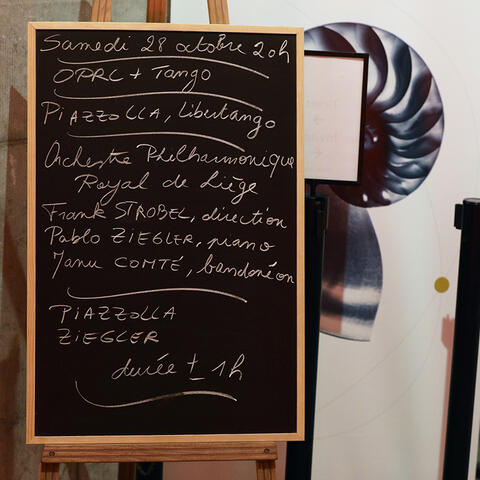 Samedi 28 octobre 20h
OPRL + Tango
PIAZZOLLA, Libertango
Orchestre Philharmonique
Royal de Liège
Frank STROBEL, direction
Pablo ZIEGLER, piano
Yanu COMTÉ, bandonéon
PIAZZOLLA
ZIEGLER
durée ± 1h